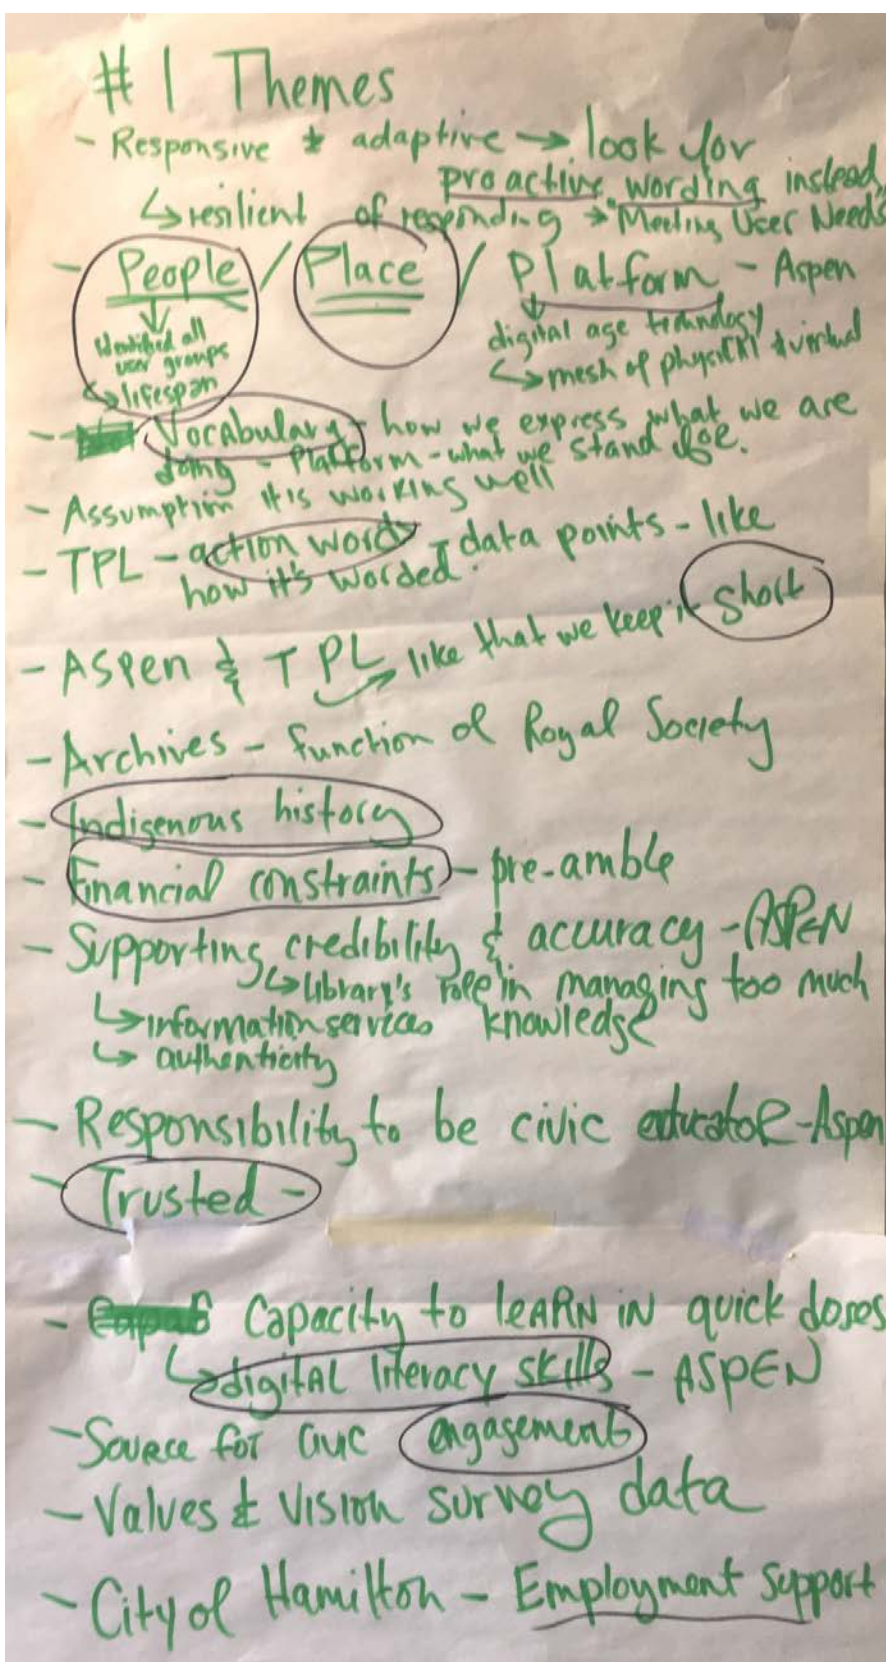 #1 Themes
- Responsive & adaptive → look for
proactive wording instead
↳ resilient of responding → "Meeting User Needs
- People / Place / Platform - Aspen
↓ Identified all user groups
↳ lifespan
↓ digital age technology
↳ mesh of physical & virtual
- Vocabulary - how we express what we are
doing - Platform - what we stand for.
- Assumption it is working well
- TPL - action words - data points - like
how it's worded.
- Aspen & TPL → like that we keep it short
- Archives - function of Royal Society
- Indigenous history
- Financial constraints - pre-amble
- Supporting credibility & accuracy - ASPEN
↳ library's role in managing too much
↳ information services knowledge
↳ authenticity
- Responsibility to be civic educator - Aspen
- Trusted -
- Capacity to leARN iN quick doses
↳ digitAL literacy skills - ASPEN
- Source for civic engagement
- Values & Vision survey data
- City of Hamilton - Employment support